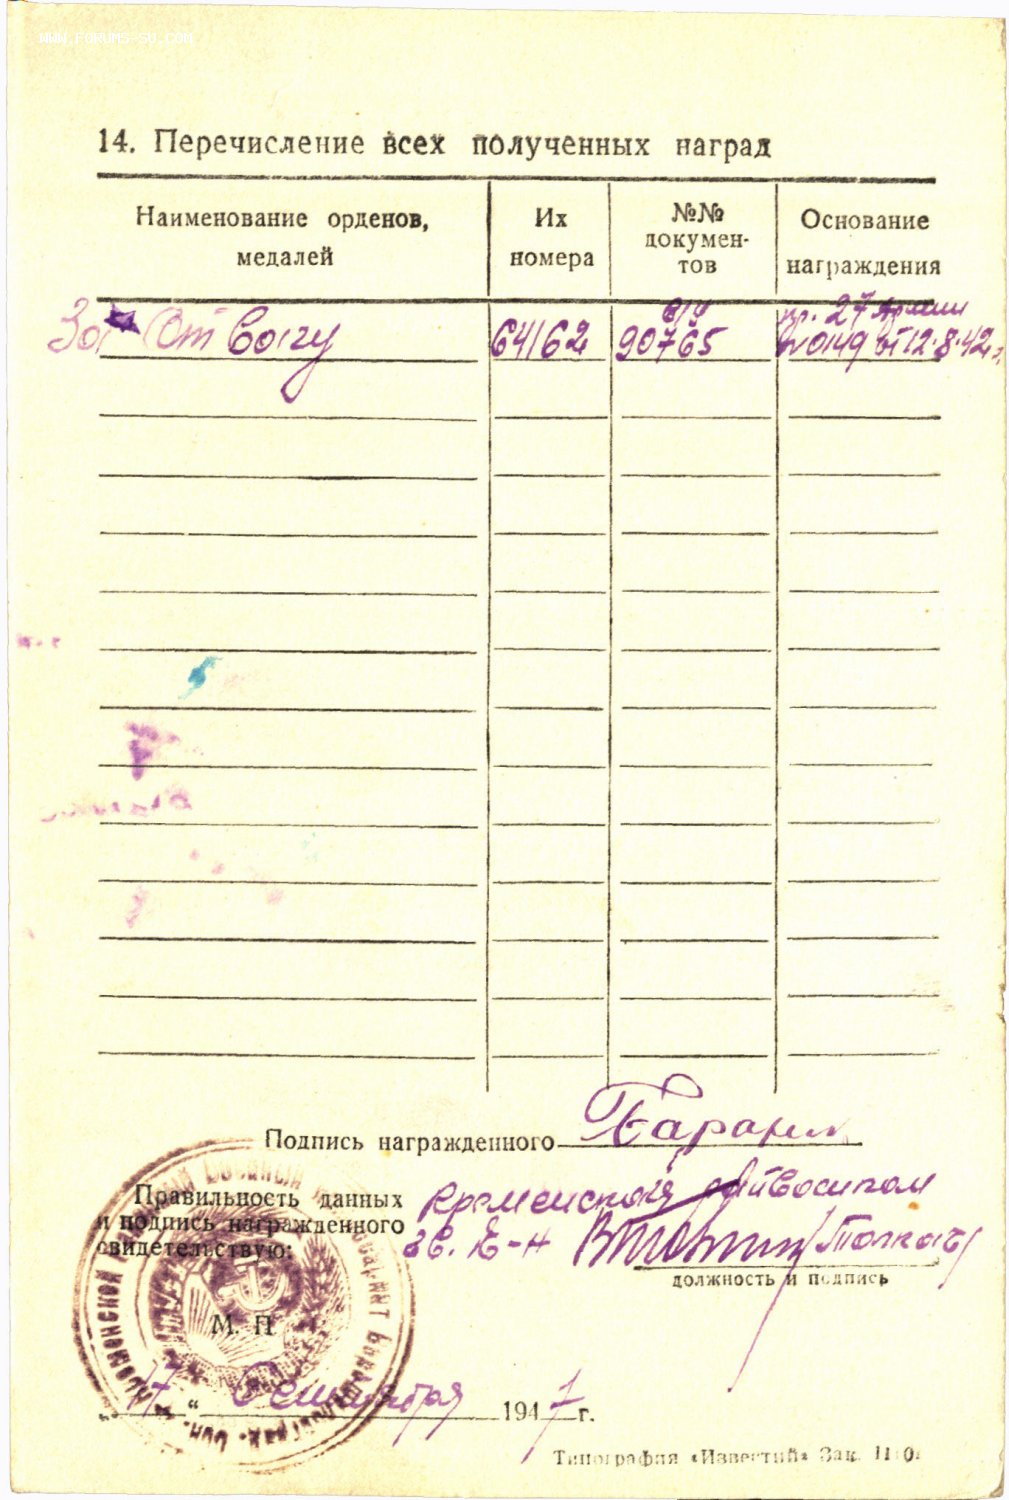 WWW.FORUMS-SU.COM
14. Перечисление всех полученных наград
Наименование орденов, медалей
Их номера
№№ докумен-тов
Основание награждения
За Отвагу
64162
в/у 90765
пр. 27 Армии №0149 от 12.8.42г.
Подпись награжденного
Правильность данных
и подпись награжденного
свидетельствую:
Кременской райвоенком
должность и подпись
М. П
17 " Сентября 1947 г.
Типография «Известий» Зак.